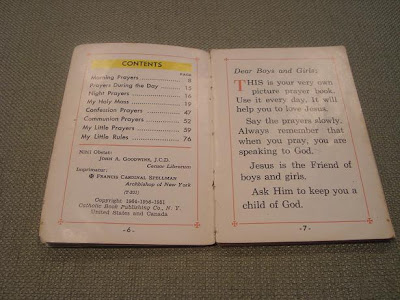 CONTENTS
PAGE
Morning Prayers ........................ 8
Prayers During the Day ............ 15
Night Prayers ........................ 16
My Holy Mass ........................ 19
Confession Prayers ................ 47
Communion Prayers ................ 52
My Little Prayers .................... 59
My Little Rules ........................ 76
Nihil Obstat:
JOHN A. GOODWINE, J.C.D.
Censor Librorum
Imprimatur:
✠ FRANCIS CARDINAL SPELLMAN
Archbishop of New York
Copyright 1954-1956-1951
Catholic Book Publishing Co., N. Y.
United States and Canada
-6-
Dear Boys and Girls;
THIS is your very own
picture prayer book.
Use it every day. It will
help you to love Jesus.
Say the prayers slowly.
Always remember that
when you pray, you are
speaking to God.
Jesus is the Friend of
boys and girls.
Ask Him to keep you a
child of God.
-7-